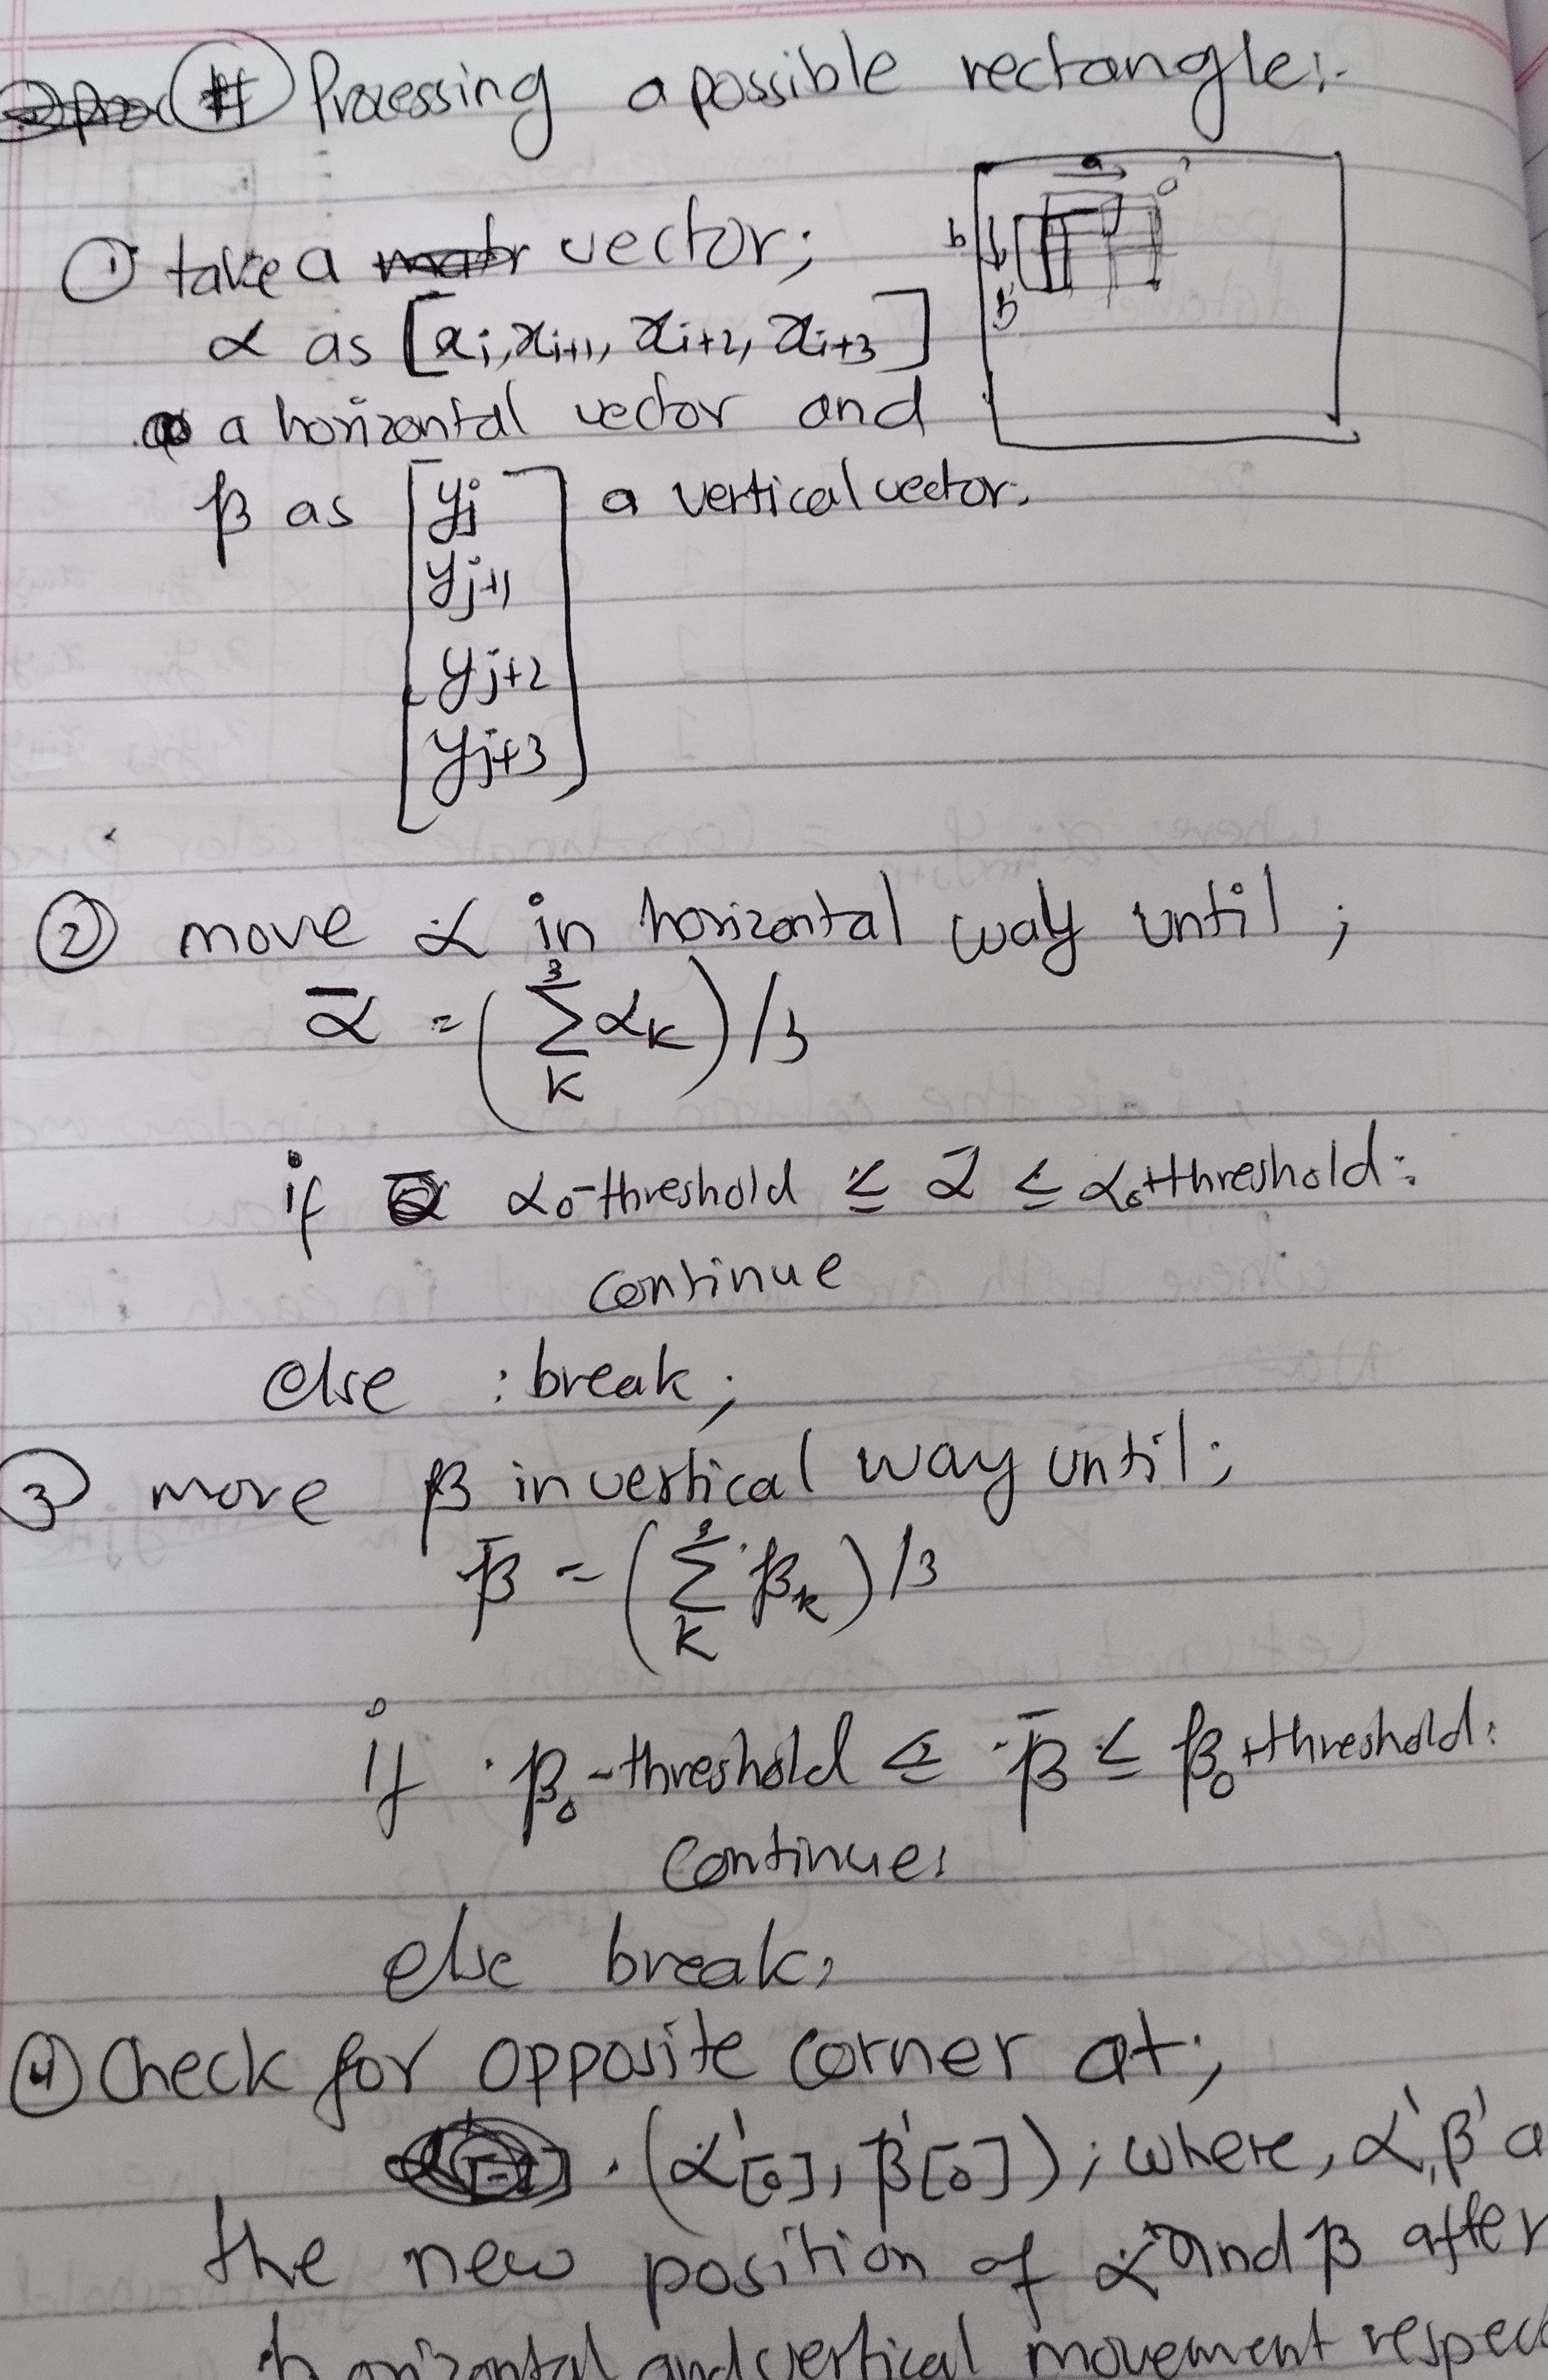 # Processing a possible rectangle:-
a a'
b
b'
① take a vector;
α as [xi, xi+1, xi+2, xi+3]
a horizontal vector and
β as [yj a vertical vector.
yj+1
yj+2
yj+3]
② move α in horizontal way until ;
ᾱ = (3∑k αk) / 3
if α0-threshold ≤ ᾱ ≤ α0+threshold:
continue
else : break ;
③ move β in vertical way until ;
β̄ = (3∑k βk) / 3
if β0-threshold ≤ β̄ ≤ β0+threshold:
continue;
else break;
④ Check for opposite corner at;
(α'[0], β'[0]) ; where, α', β' a
the new position of α and β after
horizontal and vertical movement respec